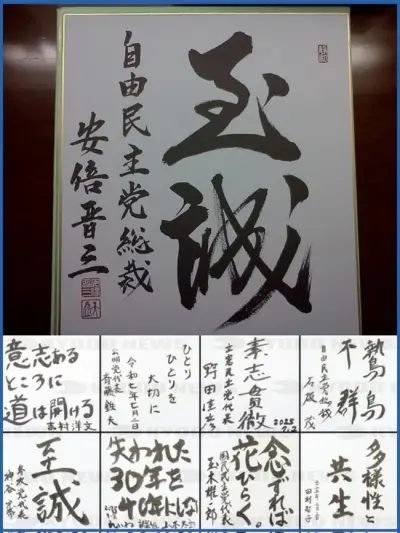 至誠
自由民主党総裁
安倍晋三
意志ある
ところに
道は開ける
吉村洋文
ひとり
ひとりを
大切に
令和七年七月二日
公明党代表
斉藤鉄夫
素志貫徹
立憲民主党代表
野田佳彦
2025
7.2
鷙鳥
不群
自由民主党総裁
石破 茂
至誠
参政党代表
神谷宗幣
失われた
30年を
40年にしない
れいわ
山本太郎
念ずれば
花ひらく。
国民民主党代表
玉木雄一郎
多様性と
共生
田村智子
KYODO NEWS